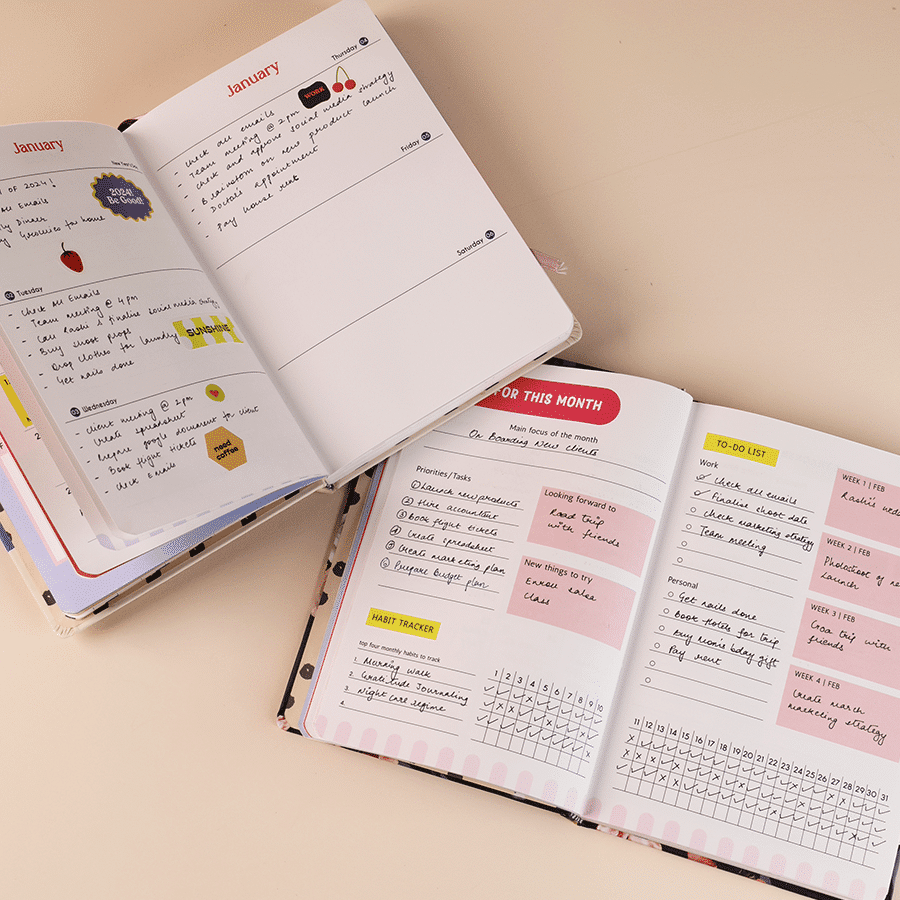 January
New Year's Day
OF 2024!
Emails
Dinner
Groceries for home
2024!
Be Good!
02 Tuesday
- Check All Emails
- Team meeting @ 4 pm
- Call Rashi & finalise social media strategy
- Buy shoot props
- Drop Clothes for laundry
- Get nails done
SUNSHINE
03 Wednesday
- Client meeting @ 2 pm
- Create spreadsheet
- Prepare google document for client
- Book flight tickets
- Check Emails
need
coffee
January
Thursday 04
WORK
- Check all emails
- Team meeting @ 2 pm
- Check and approve social media strategy
- Brainstorm on new product launch
- Doctor's appointment
- Pay house rent
Friday 05
Saturday 06
FOR THIS MONTH
Main focus of the month
On Boarding New clients
Priorities/Tasks
1 Launch new products
2 Hire accountant
3 Book flight tickets
4 Create spreadsheet
5 Create marketing plan
6 Prepare Budget plan
Looking forward to
Road trip
with friends
New things to try
Enroll salsa
class
HABIT TRACKER
top four monthly habits to track
1. Morning walk
2. Gratitude Journaling
3. Night care regime
4.
1 2 3 4 5 6 7 8 9 10
TO-DO LIST
Work
Check all emails
Finalise shoot date
Check marketing strategy
Team meeting
Personal
Get nails done
Book Hotels for trip
Buy Mom's bday gift
Pay rent
WEEK 1 | FEB
Rashi's
WEEK 2 | FEB
Photoshoot of
launch
WEEK 3 | FEB
Goa trip with
friends
WEEK 4 | FEB
Create march
marketing strategy
11 12 13 14 15 16 17 18 19 20 21 22 23 24 25 26 27 28 29 30 31